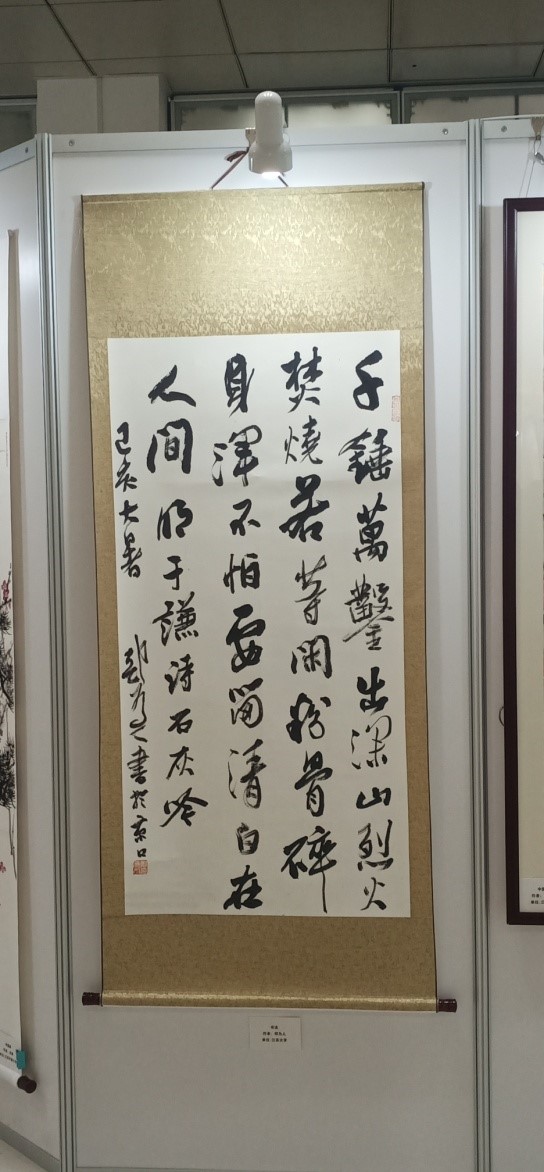 千錘萬鑿出深山烈火
焚燒若等閑粉骨碎
身渾不怕要留清白在
人間 明于謙诗石灰吟
己亥大暑
書於京口